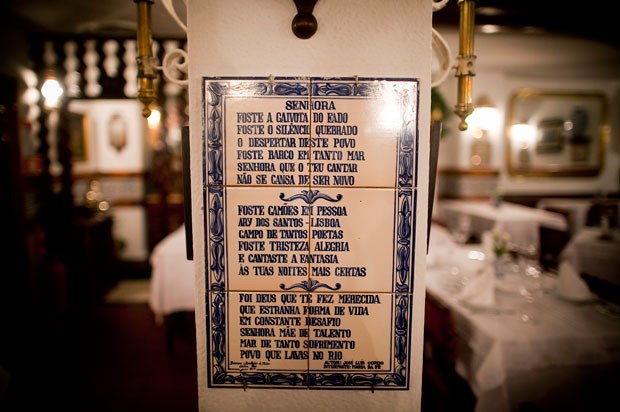 SENHORA
FOSTE A GAIVOTA DO FADO
FOSTE O SILÊNCIO QUEBRADO
O DESPERTAR DESTE POVO
FOSTE BARCO EM TANTO MAR
SENHORA QUE O TEU CANTAR
NÃO SE CANSA DE SER NOVO
FOSTE CAMÕES EM PESSOA
ARY DOS SANTOS - LISBOA
CAMPO DE TANTOS POETAS
FOSTE TRISTEZA ALEGRIA
E CANTASTE A FANTASIA
ÀS TUAS NOITES MAIS CERTAS
FOI DEUS QUE TE FEZ MERECIDA
QUE ESTRANHA FORMA DE VIDA
EM CONSTANTE DESAFIO
SENHORA MÃE DE TALENTO
MAR DE TANTO SOFRIMENTO
POVO QUE LAVAS NO RIO
AUTOR: JOSÉ LUIS GORDO
INTERPRETE: MARIA DA FÉ